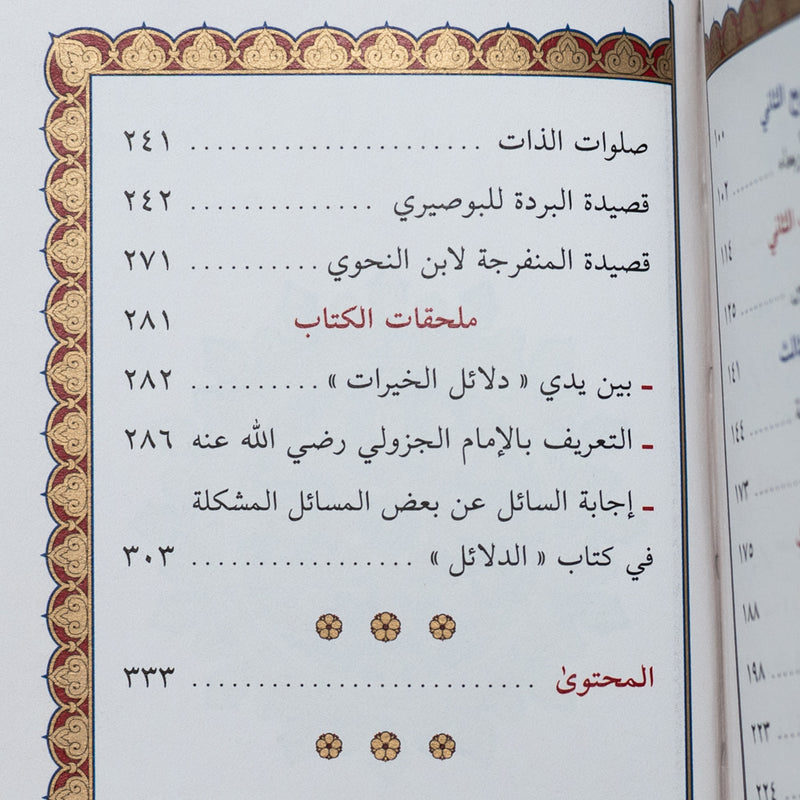 صلوات الذات ............................ ٢٤١
قصيدة البردة للبوصيري ............... ٢٤٢
قصيدة المنفرجة لابن النحوي .......... ٢٧١
ملحقات الكتاب ٢٨١
- بين يدي « دلائل الخيرات » .......... ٢٨٢
- التعريف بالإمام الجزولي رضي الله عنه ٢٨٦
- إجابة السائل عن بعض المسائل المشكلة
في كتاب « الدلائل » ................. ٣٠٣
المحتوىٰ ........................... ٣٣٣
الثاني
١٠٠
١٠٢
الثاني
١١٤
١٢٥
الثالث
١٤١
١٤٤
١٧٣
١٧٥
١٨٨
١٩٨
٢٢٣
٢٢٤